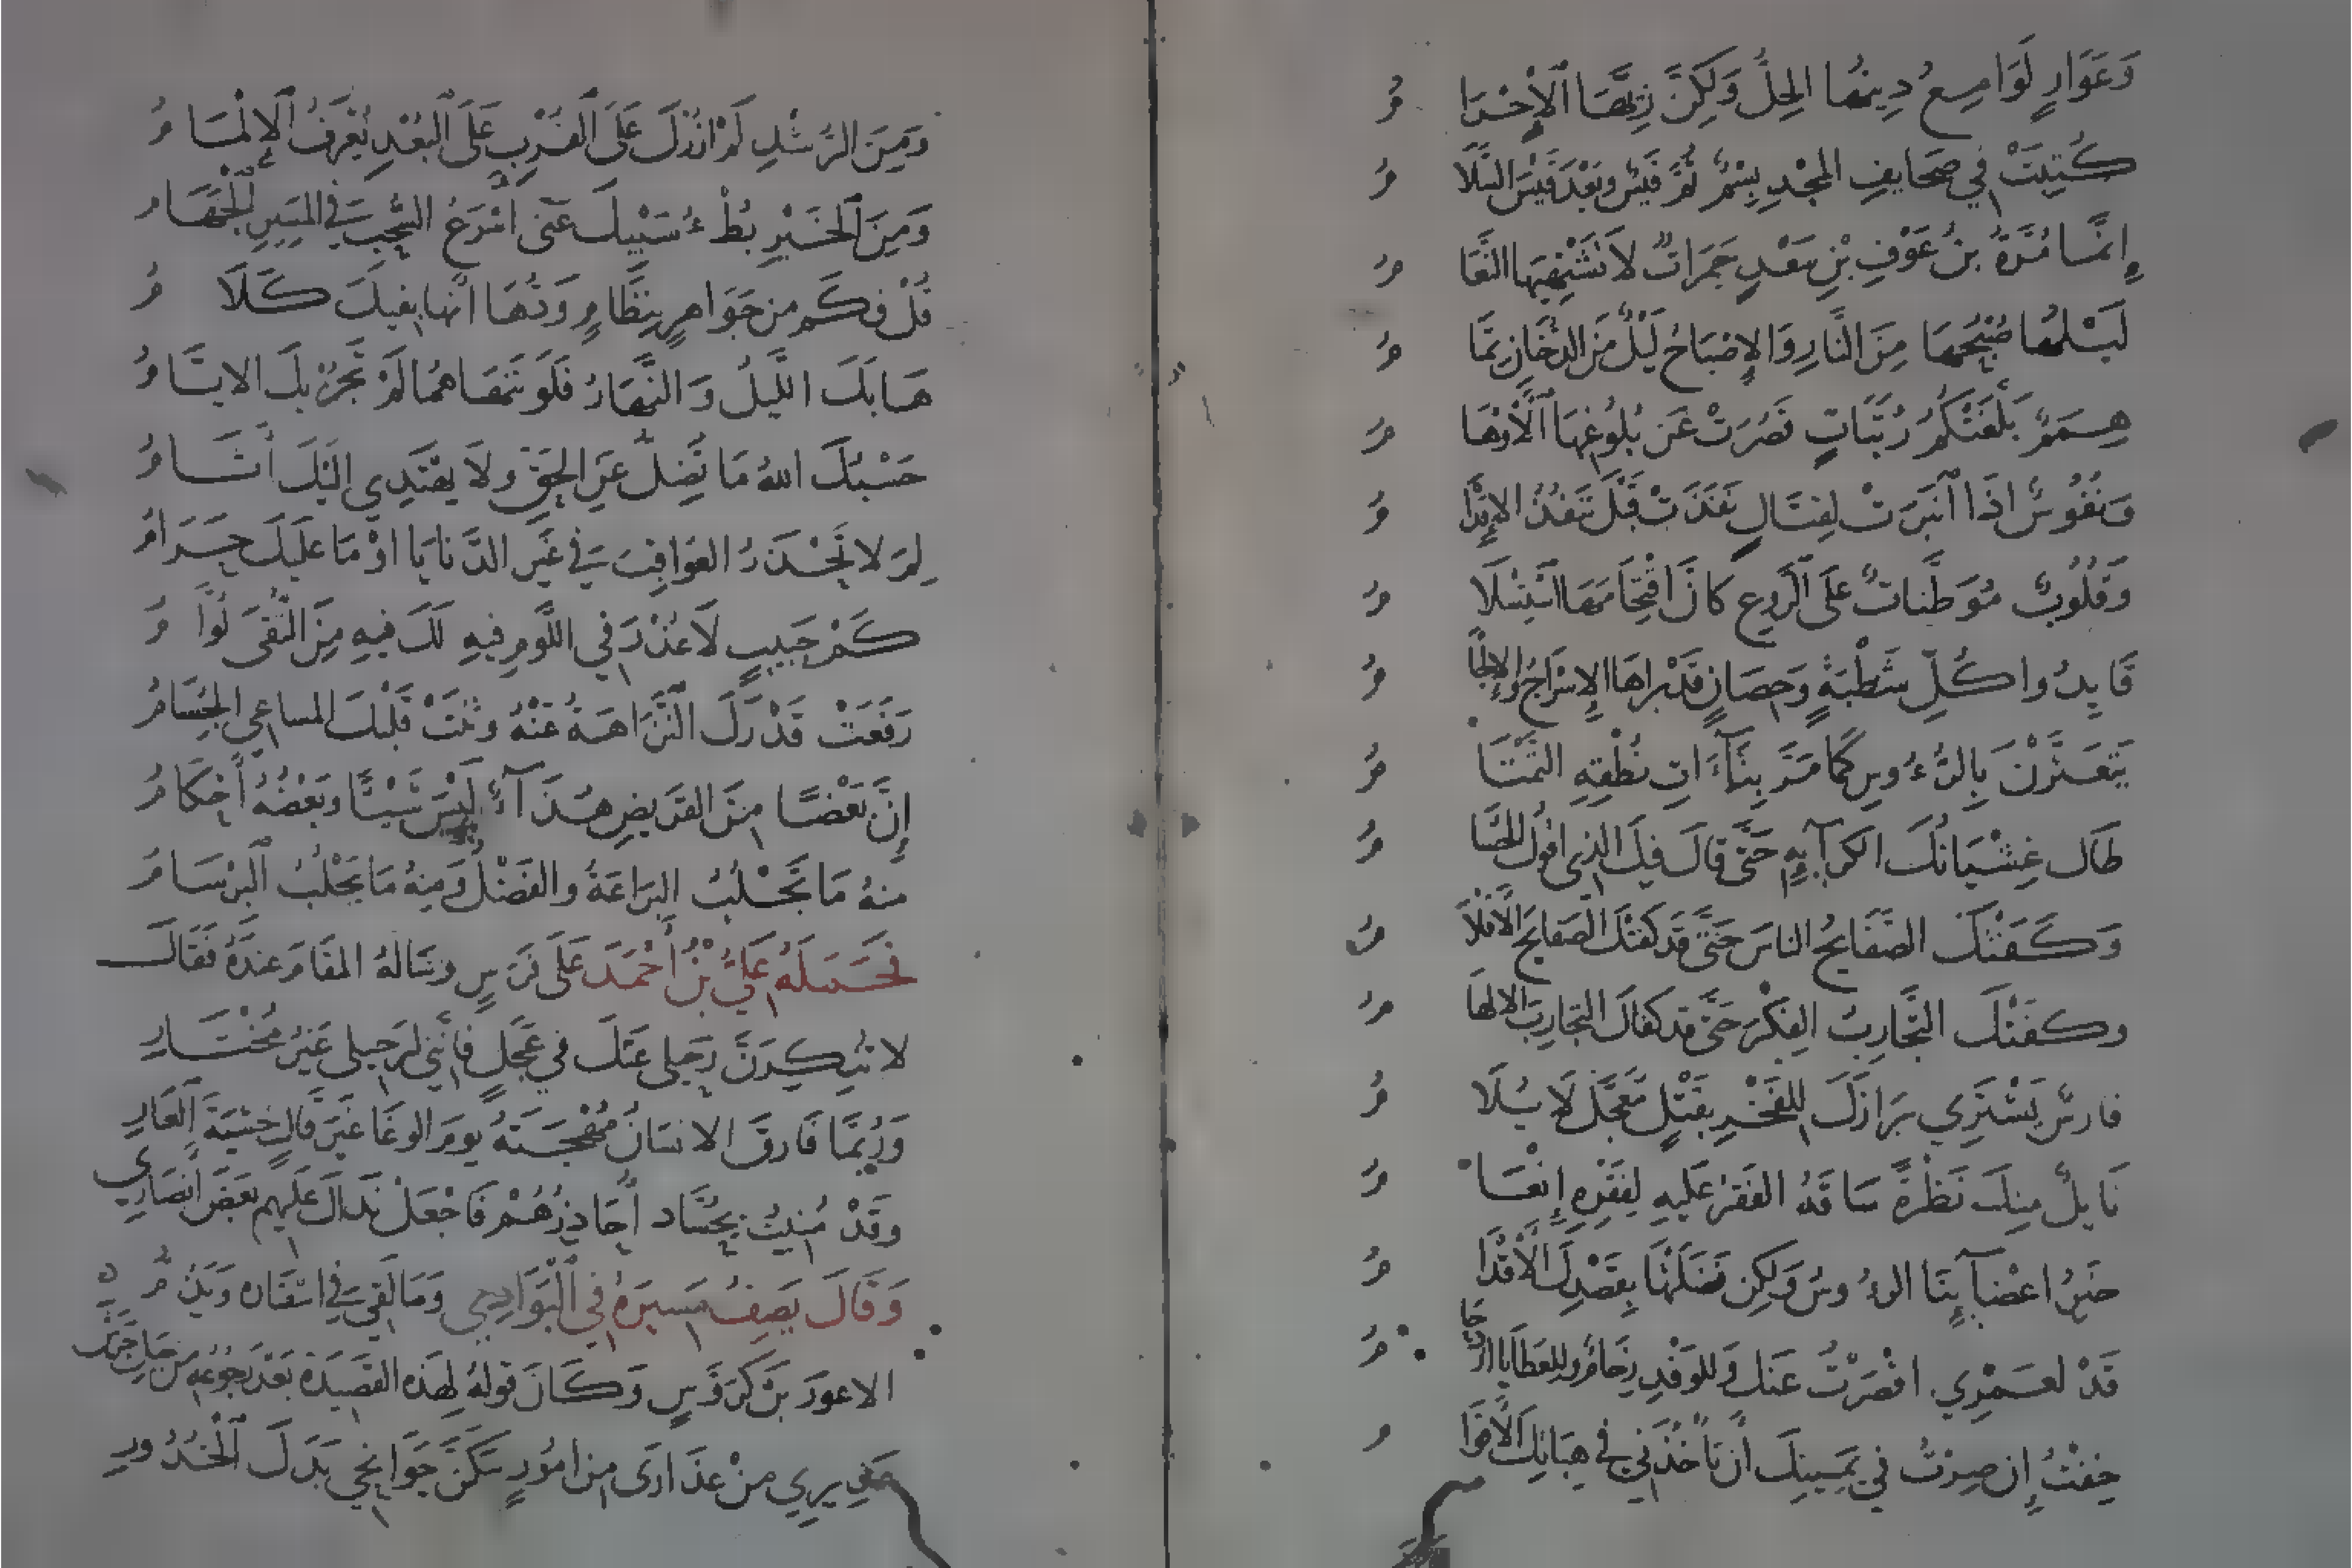 وَعَوَارٍ لَوَامِعُ دِينُهَا الحِلُّ وَلَكِنَّ زِيَّهَا الْإِحْرَا مُ
كُتِبَتْ فِي صَحَايِفِ المَجْدِ بِسْمٌ ثُمَّ قَيْسٌ وَبَعْدَ قَيْسَ السَّلَا مُ
إِنَّمَا مُرَّةُ بْنُ عَوْفِ بْنِ سَعْدٍ جَمَرَاتٌ لَا تَشْتَهِيهَا النَّعَا مُ
لَيْلُهَا صُبْحُهَا مِنَ النَّارِ وَالْإِصْبَاحُ لَيْلٌ مِنَ الدُّخَانِ تِمَا مُ
هِمَمٌ بَلَّغَتْكُمُ رُتَبَاتٍ قَصُرَتْ عَنْ بُلُوغِهَا الْأَوْهَا مُ
وَنُفُوسٌ اِذَا انْبَرَتْ لِقِتَالٍ نَفَذَتْ قَبْلَ يَنْفَذُ الْإِقْدَا مُ
وَقُلُوبٌ مُوَطَّنَاتٌ عَلَى الرَّوْعِ كَانَ اقْتِحَامَهَا اسْتِسْلَا مُ
قَايِدُوا كُلِّ شَطْبَةٍ وَحِصَانٍ قَدْ بَرَاهَا الْإِسْرَاجُ وَالْإِلْجَا مُ
يَتَعَثَّرْنَ بِالرُّءُوسِ كَمَا مَرَّ بِتَآءَاتِ نُطْقِهِ التَّمْتَا مُ
طَالَ غِشْيَانُكَ الكَرَآيِهِ حَتَّى قَالَ فِيكَ الَّذِي اقُولُ الحُسَا مُ
وَكَفَتْكَ الصَّفَايِحُ الناسَ حَتَّى قَدْ كَفَتْكَ الصَّفَايِحَ الْأَقْلَا مُ
وكَفَتْكَ التَّجَارِبُ الفِكْرَ حَتَّى قد كَفَاكَ التَّجَارِبَ الالهَا مُ
فارسٌ يَشْتَرِي بِرَازَكَ لِلْفَخْرِ بِقَتْلٍ مُعَجَّلٍ لَا يُلَا مُ
نَايِلٌ مِنكَ نَظْرَةً سَاقَهُ الفَقْرُ عَلَيْهِ لِفَقْرِهِ إِنْعَا مُ
خَيْرُ اعْضَآيِنَا الرُّءُوسُ وَلَكِن فَضَلَتْهَا بِقَصْدِكَ الْأَقْدَا مُ
قَدْ لعَمْرِي اقْصَرْتُ عَنكَ وَلِلوَفْدِ زِحَامٌ وَلِلعَطَايَا ازْدِحَا مُ
خِفْتُ إِن صِرْتُ فِي يَمِينِكَ أَنْ تَأْخُذَنِي فِي هِبَاتِكَ الْأَقْوَا مُ
وَمِنَ الرُّشْدِ لَمْ ازُرْكَ عَلَى القُرْبِ عَلَى البُعْدِ يُعْرَفُ الْإِلْمَا مُ
وَمِنَ الْخَيْرِ بُطْءُ سَيْبِكَ عَنِّى اسْرَعُ السُّحْبِ فِي المَسِيرِ الْجَهَا مُ
قُلْ فكَم مِن جَوَاهِرٍ بِنِظَامٍ وَدُّهَا انَّهَا بِفِيكَ كَلَا مُ
هَابَكَ اللَّيْلُ وَالنَّهَارُ فَلَوْ تَنْهَاهُمَا لَمْ تَجُزْ بِكَ الايَّا مُ
حَسْبُكَ اللهُ مَا تَضِلُّ عَنِ الحَقِّ ولَا يَهْتَدِي اِلَيْكَ أَثَا مُ
لِمَ لا تَحْذَرُ العَوَاقِبَ فِي غَيْرِ الدَّنَايَا اوْ مَا عَلَيْكَ حَرَامُ
كَمْ حَبِيبٍ لَا عُذْرَ فِي اللَّوْمِ فِيهِ لَكَ فِيهِ مِنَ التُّقَى لُوَّا مُ
رَفَعَتْ قَدْرَكَ النَّزَاهَةُ عَنْهُ وثَنَتْ قَلْبَكَ المساعِي الجِسَامُ
إِنَّ بَعْضًا مِنَ القَرِيضِ هُذَآءٌ لَيْسَ شَيْئًا وبَعْضُهُ أَحْكَا مُ
منهُ مَا تَجْلُبُ البَرَاعَةُ والفَضْلُ وَمِنهُ مَا يَجْلُبُ الْبِرْسَا مُ
فَحَمَلَهُ عَلِيُّ بْنُ أَحْمَدَ عَلَى فَرَسٍ وسَالهُ المقَامَ عندَهُ فَقَالَ
لا تُنكِرَنَّ رَحِيلى عَنْكَ فِي عَجَلٍ فَإِنَّنِي لِرَحِيلى غَيْرُ مُخْتَارِ
وَرُبَّمَا فَارَقَ الانسَانُ مُهْجَتَهُ يَوْمَ الوَغَا غَيْرَ قَالٍ خَشْيَةَ الْعَارِ
وقَدْ مُنِيتُ بِحُسَّادٍ أُحَاذِرُهُمْ فَاجْعَلْ نَدَاكَ عَلَيْهِم بَعْضَ أَنْصَارِي
وَقَالَ يَصِفُ مَسِيرَهُ فِي الْبَوَادِي وَمَا لَقِيَ فِي اسْفَارِهِ وَيَذُمُّ
الاعورَ بْنَ كَرَوَّسٍ وَكَانَ قولهُ لِهَذِهِ القَصِيدَةِ بَعْدَ رُجُوعِهِ مِن جَبَلِ جَرَشَ
عَذِيرِي مِنْ عَذَارَى مِن امُورٍ سَكَنَّ جَوَانِحِي بَدَلَ الْخُدُورِ